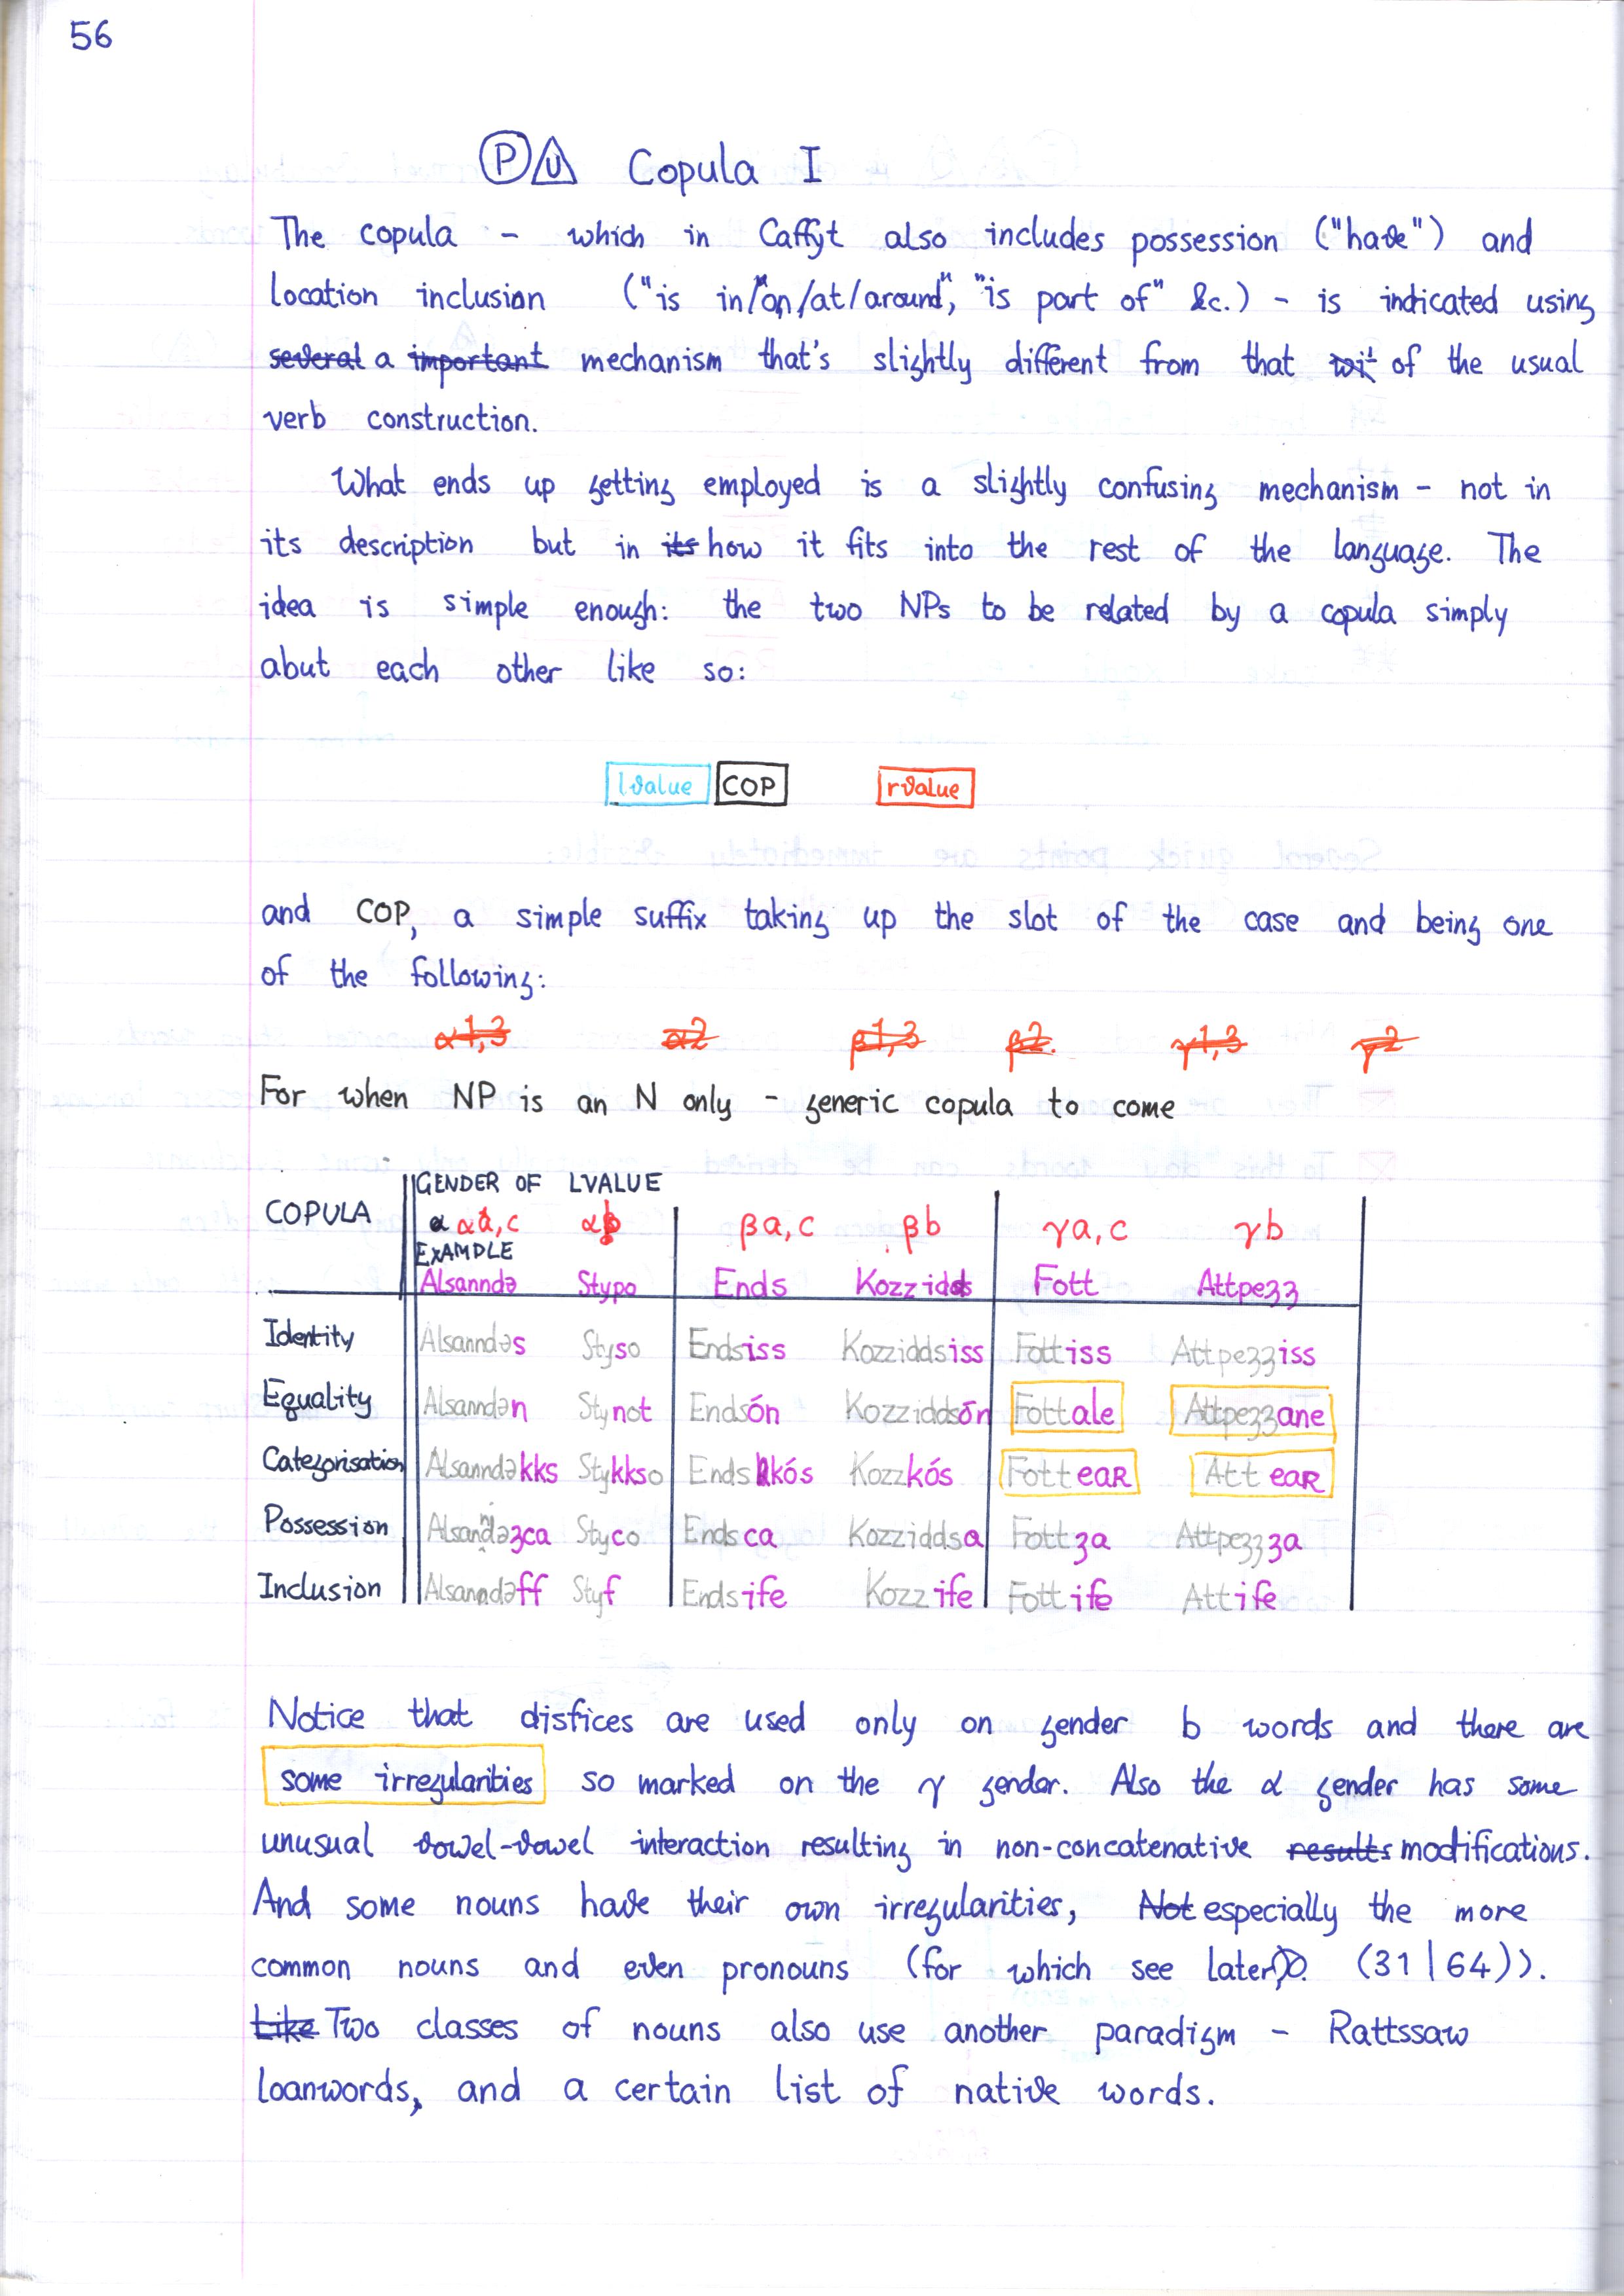 56
P U Copula I
The copula – which in Caffyt also includes possession ("have") and
location inclusion ("is in/"on/at/around", "is part of" &c.) – is indicated using
several a important mechanism that's slightly different from that of the usual
verb construction.
What ends up getting employed is a slightly confusing mechanism – not in
its description but in its how it fits into the rest of the language. The
idea is simple enough: the two NPs to be related by a copula simply
abut each other like so:
lvalue COP rvalue
and COP, a simple suffix taking up the slot of the case and being one
of the following:
α1,3 α2 β1,3 β2 γ1,3 γ2
For when NP is an N only – generic copula to come
GENDER OF LVALUE
COPULA α αa,c αb βa,c βb γa,c γb
EXAMPLE
Alsanndə Stypo Ends Kozzidds Fott Attpeʒʒ
Identity Alsanndəs Styso Endsiss Kozziddsiss Fottiss Attpeʒʒiss
Equality Alsanndən Stynot Endsón Kozziddsón Fottale Attpeʒʒane
Categorisation Alsanndəkks Stykkso Endskós Kozzkós Fottear Attear
Possession Alsanndəʒca Styco Endsca Kozziddsa Fottʒa Attpeʒʒʒa
Inclusion Alsanndəff Styf Endsife Kozzife Fottife Attife
Notice that disfices are used only on gender b words and there are
some irregularities so marked on the γ gender. Also the α gender has some
unusual vowel-vowel interaction resulting in non-concatenative results modifications.
And some nouns have their own irregularities, Not especially the more
common nouns and even pronouns (for which see later (31|64)).
Like Two classes of nouns also use another paradigm – Rattssaw
loanwords, and a certain list of native words.